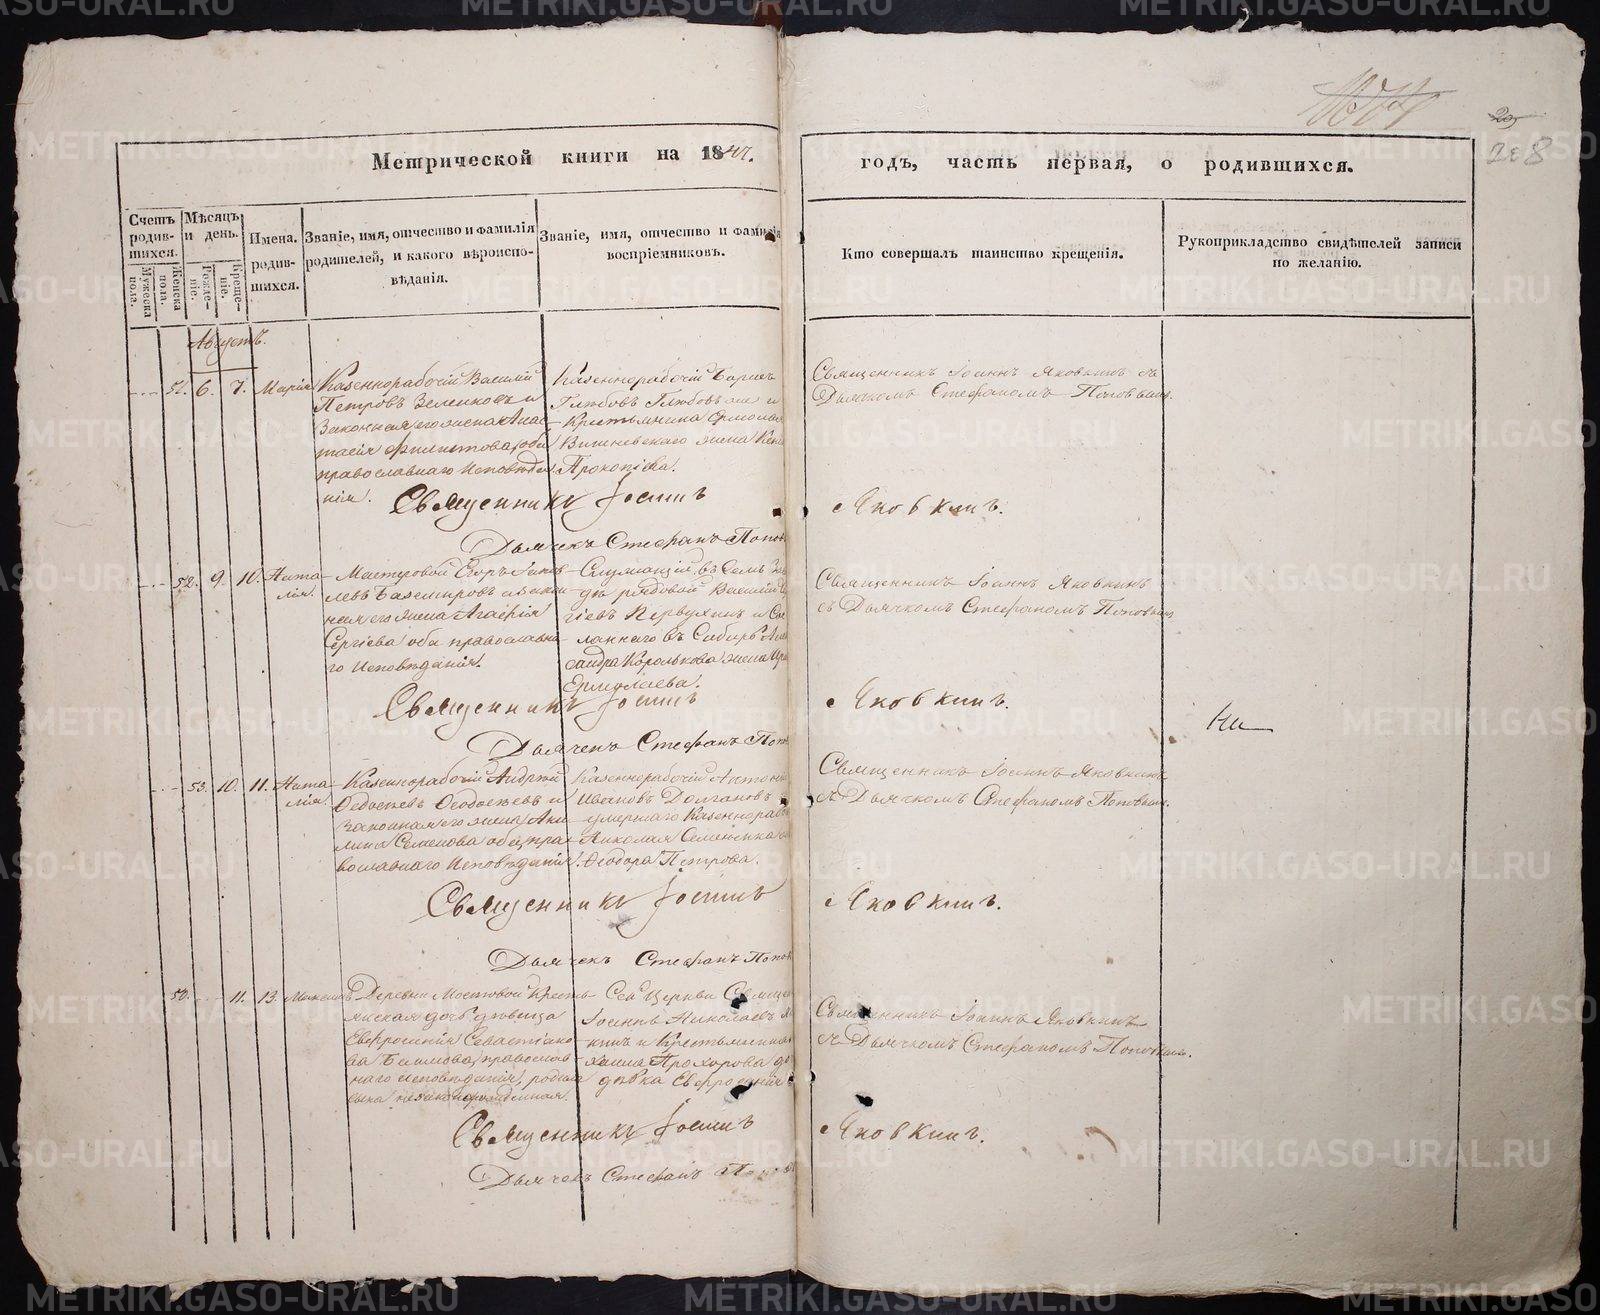 Метрической книги на 1844.
годъ, часть первая, о родившихся.
228
Счетъ родив-шихся.
Мужеска пола.
Женска пола.
Мѣсяцъ и день.
Рожде-ніе.
Креще-ніе.
Имена. родив-шихся.
Званіе, имя, отчество и фамилія
родителей, и какого вѣроиспо-
вѣданія.
Званіе, имя, отчество и фамилія
воспріемниковъ.
Кто совершалъ таинство крещенія.
Рукоприкладство свидѣтелей записи
по желанію.
Августъ.
51. 6. 7. Марія
Казеннорабочій Василій
Петровъ Зеленковъ и
Законная его жена Анас-
тасія Филитова, оба
православнаго Исповѣда
нія.
Казеннорабочій Борисъ
Глѣбовъ Глѣбовъ и
Крестьянина Ермолая
Вишневскаго жена
Прокопіева.
Священникъ Іоаннъ Яковкинъ съ
Дьячкомъ Стефаномъ Поповымъ.
Священникъ Іоаннъ Яковкинъ.
Дьячекъ Стефанъ Попов
52. 9. 10. Ната-
лія.
Мастеровой Егоръ Яков
левъ Баземировъ и закон
ная его жена Агафія
Сергіева оба православна-
го Исповѣданія.
Служащій въ семъ За
дѣ рядовой Василій
гіевъ Первухинъ и Сос
ланнаго въ Сибирь Алек
сандра Королькова жена Ири
Ермолаева.
Священникъ Іоаннъ Яковкинъ
съ Дьячкомъ Стефаномъ Поповымъ
Священникъ Іоаннъ Яковкинъ.
Дьячекъ Стефанъ Поп
Ни
53. 10. 11. Ната-
лія.
Казеннорабочій Андрей
Ѳедосѣевъ Ѳеодосѣевъ и
законная его жена Аки-
лина Семенова оба пра-
вославнаго Исповѣданія.
Казеннорабочій Антоній
Ивановъ Долгановъ
умершаго Казеннорабоч
Николая Семенека
Ѳеодора Петрова.
Священникъ Іоаннъ Яковкинъ
съ Дьячкомъ Стефаномъ Поповымъ.
Священникъ Іоаннъ Яковкинъ.
Дьячекъ Стефанъ Попов
50. 11. 13. Максимъ
Деревни Мостовой Кресть-
янская дочь дѣвица
Евфросинія Севастіано-
ва Бѣлимова, православ-
наго исповѣданія, родила
сына незаконорожденная.
Сей Церкви Священ
Іоаннъ Николаевъ Я
кинъ и Крестьянина
Прохорова до
дѣвка Евфросинія
Священникъ Іоаннъ Яковкинъ
съ Дьячкомъ Стефаномъ Поповымъ.
Священникъ Іоаннъ Яковкинъ.
Дьячекъ Стефанъ Попов
METRIKI.GASO-URAL.RU